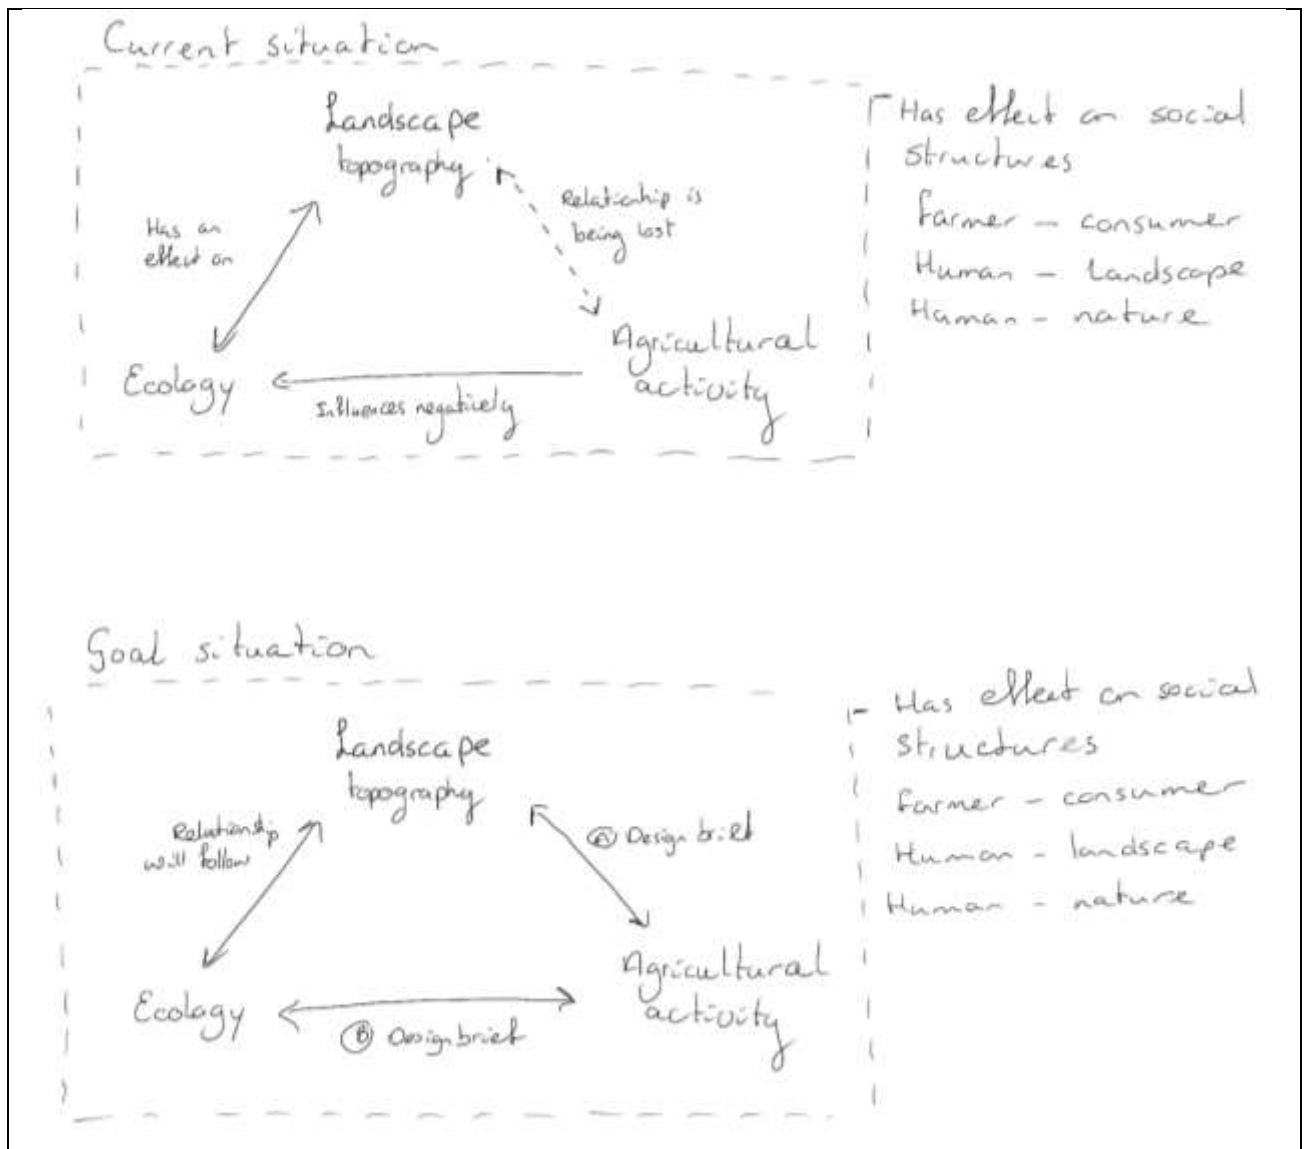 Current situation
Landscape
topography
Has an
effect on
Relationship is
being lost
Ecology
Influences negatively
Agricultural
activity
Has effect on social
structures
Farmer - consumer
Human - Landscape
Human - nature
Goal situation
Landscape
topography
Relationship
will follow
A Design brief
Ecology
B Design brief
Agricultural
activity
Has effect on social
structures
Farmer - consumer
Human - landscape
Human - nature